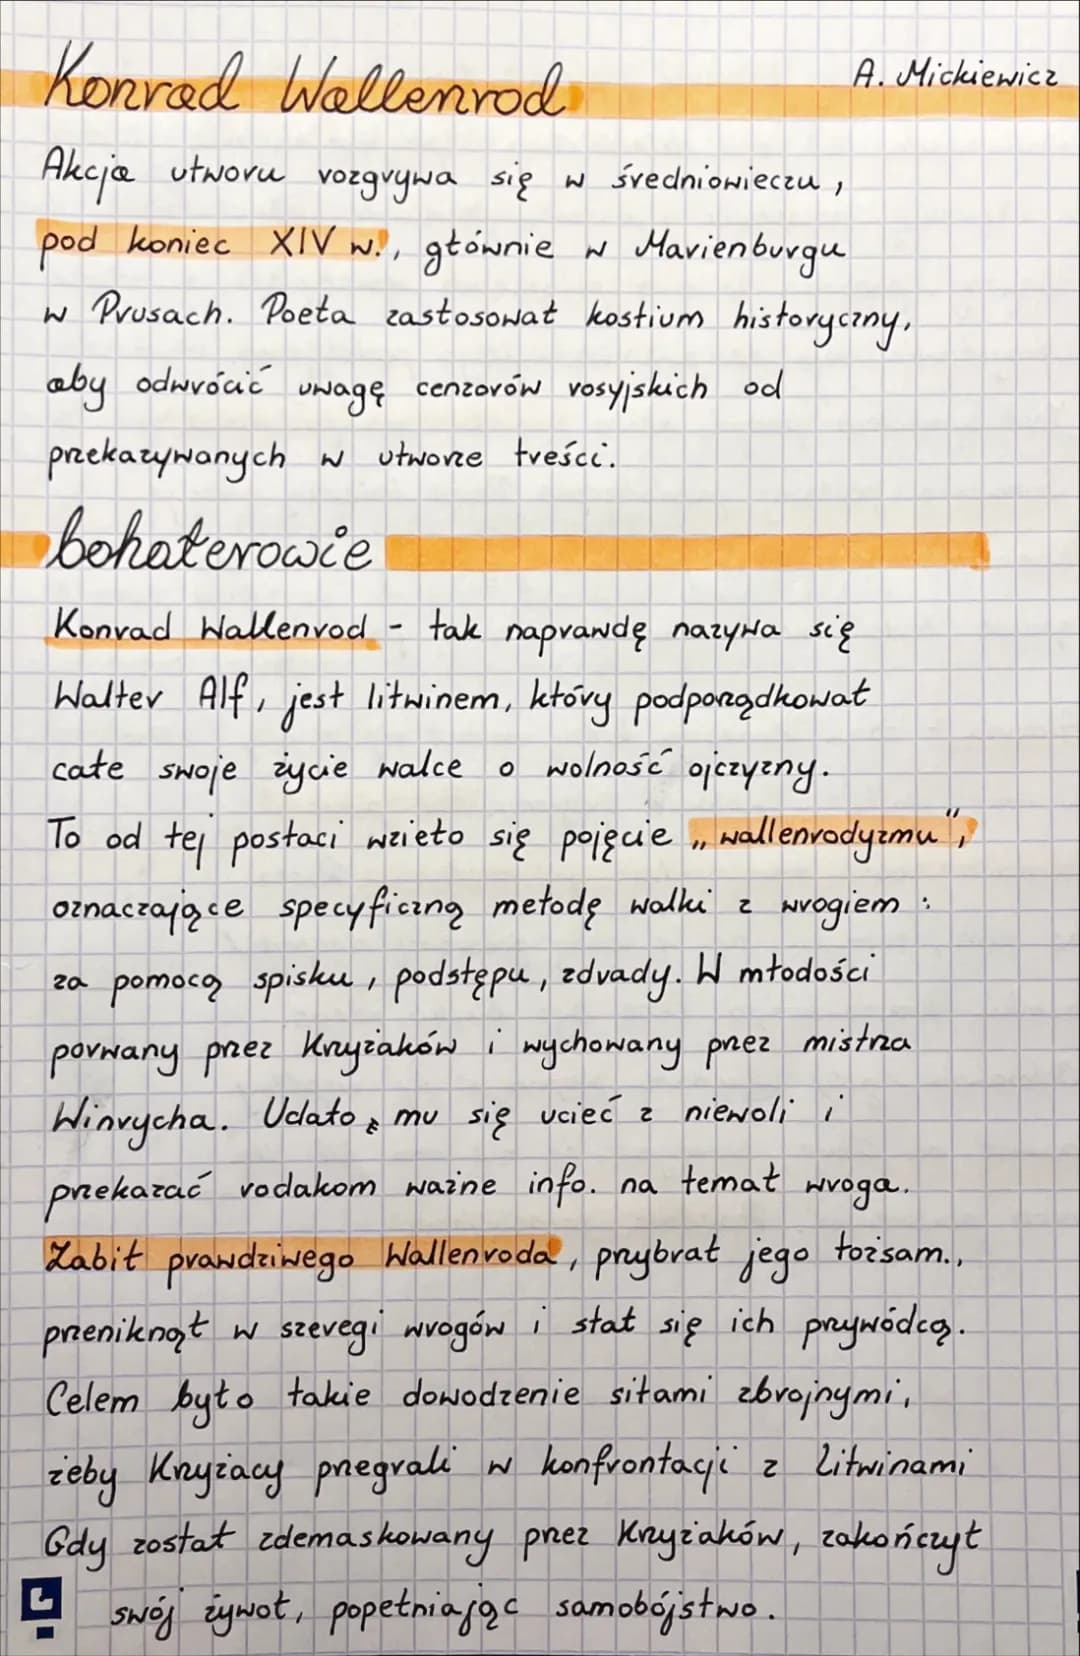 Konrad Wallenrod
A. Mickiewicz
Akcja utworu rozgrywa się w średniowieczu,
pod koniec XIV w., głównie w Marienburgu
w Prusach. Poeta zastosował kostium historyczny,
aby odwrócić uwagę cenzorów rosyjskich od
przekazywanych w utworze treści.
bohaterowie
Konrad Wallenrod - tak naprawdę nazywa się
Walter Alf, jest litwinem, który podporządkował
całe swoje życie walce o wolność ojczyzny.
To od tej postaci wzieło się pojęcie „wallenrodyzmu",
oznaczające specyficzną metodę walki z wrogiem:
za pomocą spisku, podstępu, zdrady. W młodości
porwany przez Krzyżaków i wychowany przez mistrza
Winrycha. Udało mu się uciec z niewoli i
przekazać rodakom ważne info. na temat wroga.
Zabił prawdziwego Wallenroda, przybrał jego tożsam.,
przeniknął w szeregi wrogów i stał się ich przywódcą.
Celem było takie dowodzenie siłami zbrojnymi,
żeby Krzyżacy przegrali w konfrontacji z Litwinami
Gdy został zdemaskowany przez Krzyżaków, zakończył
swój żywot, popełniając samobójstwo.